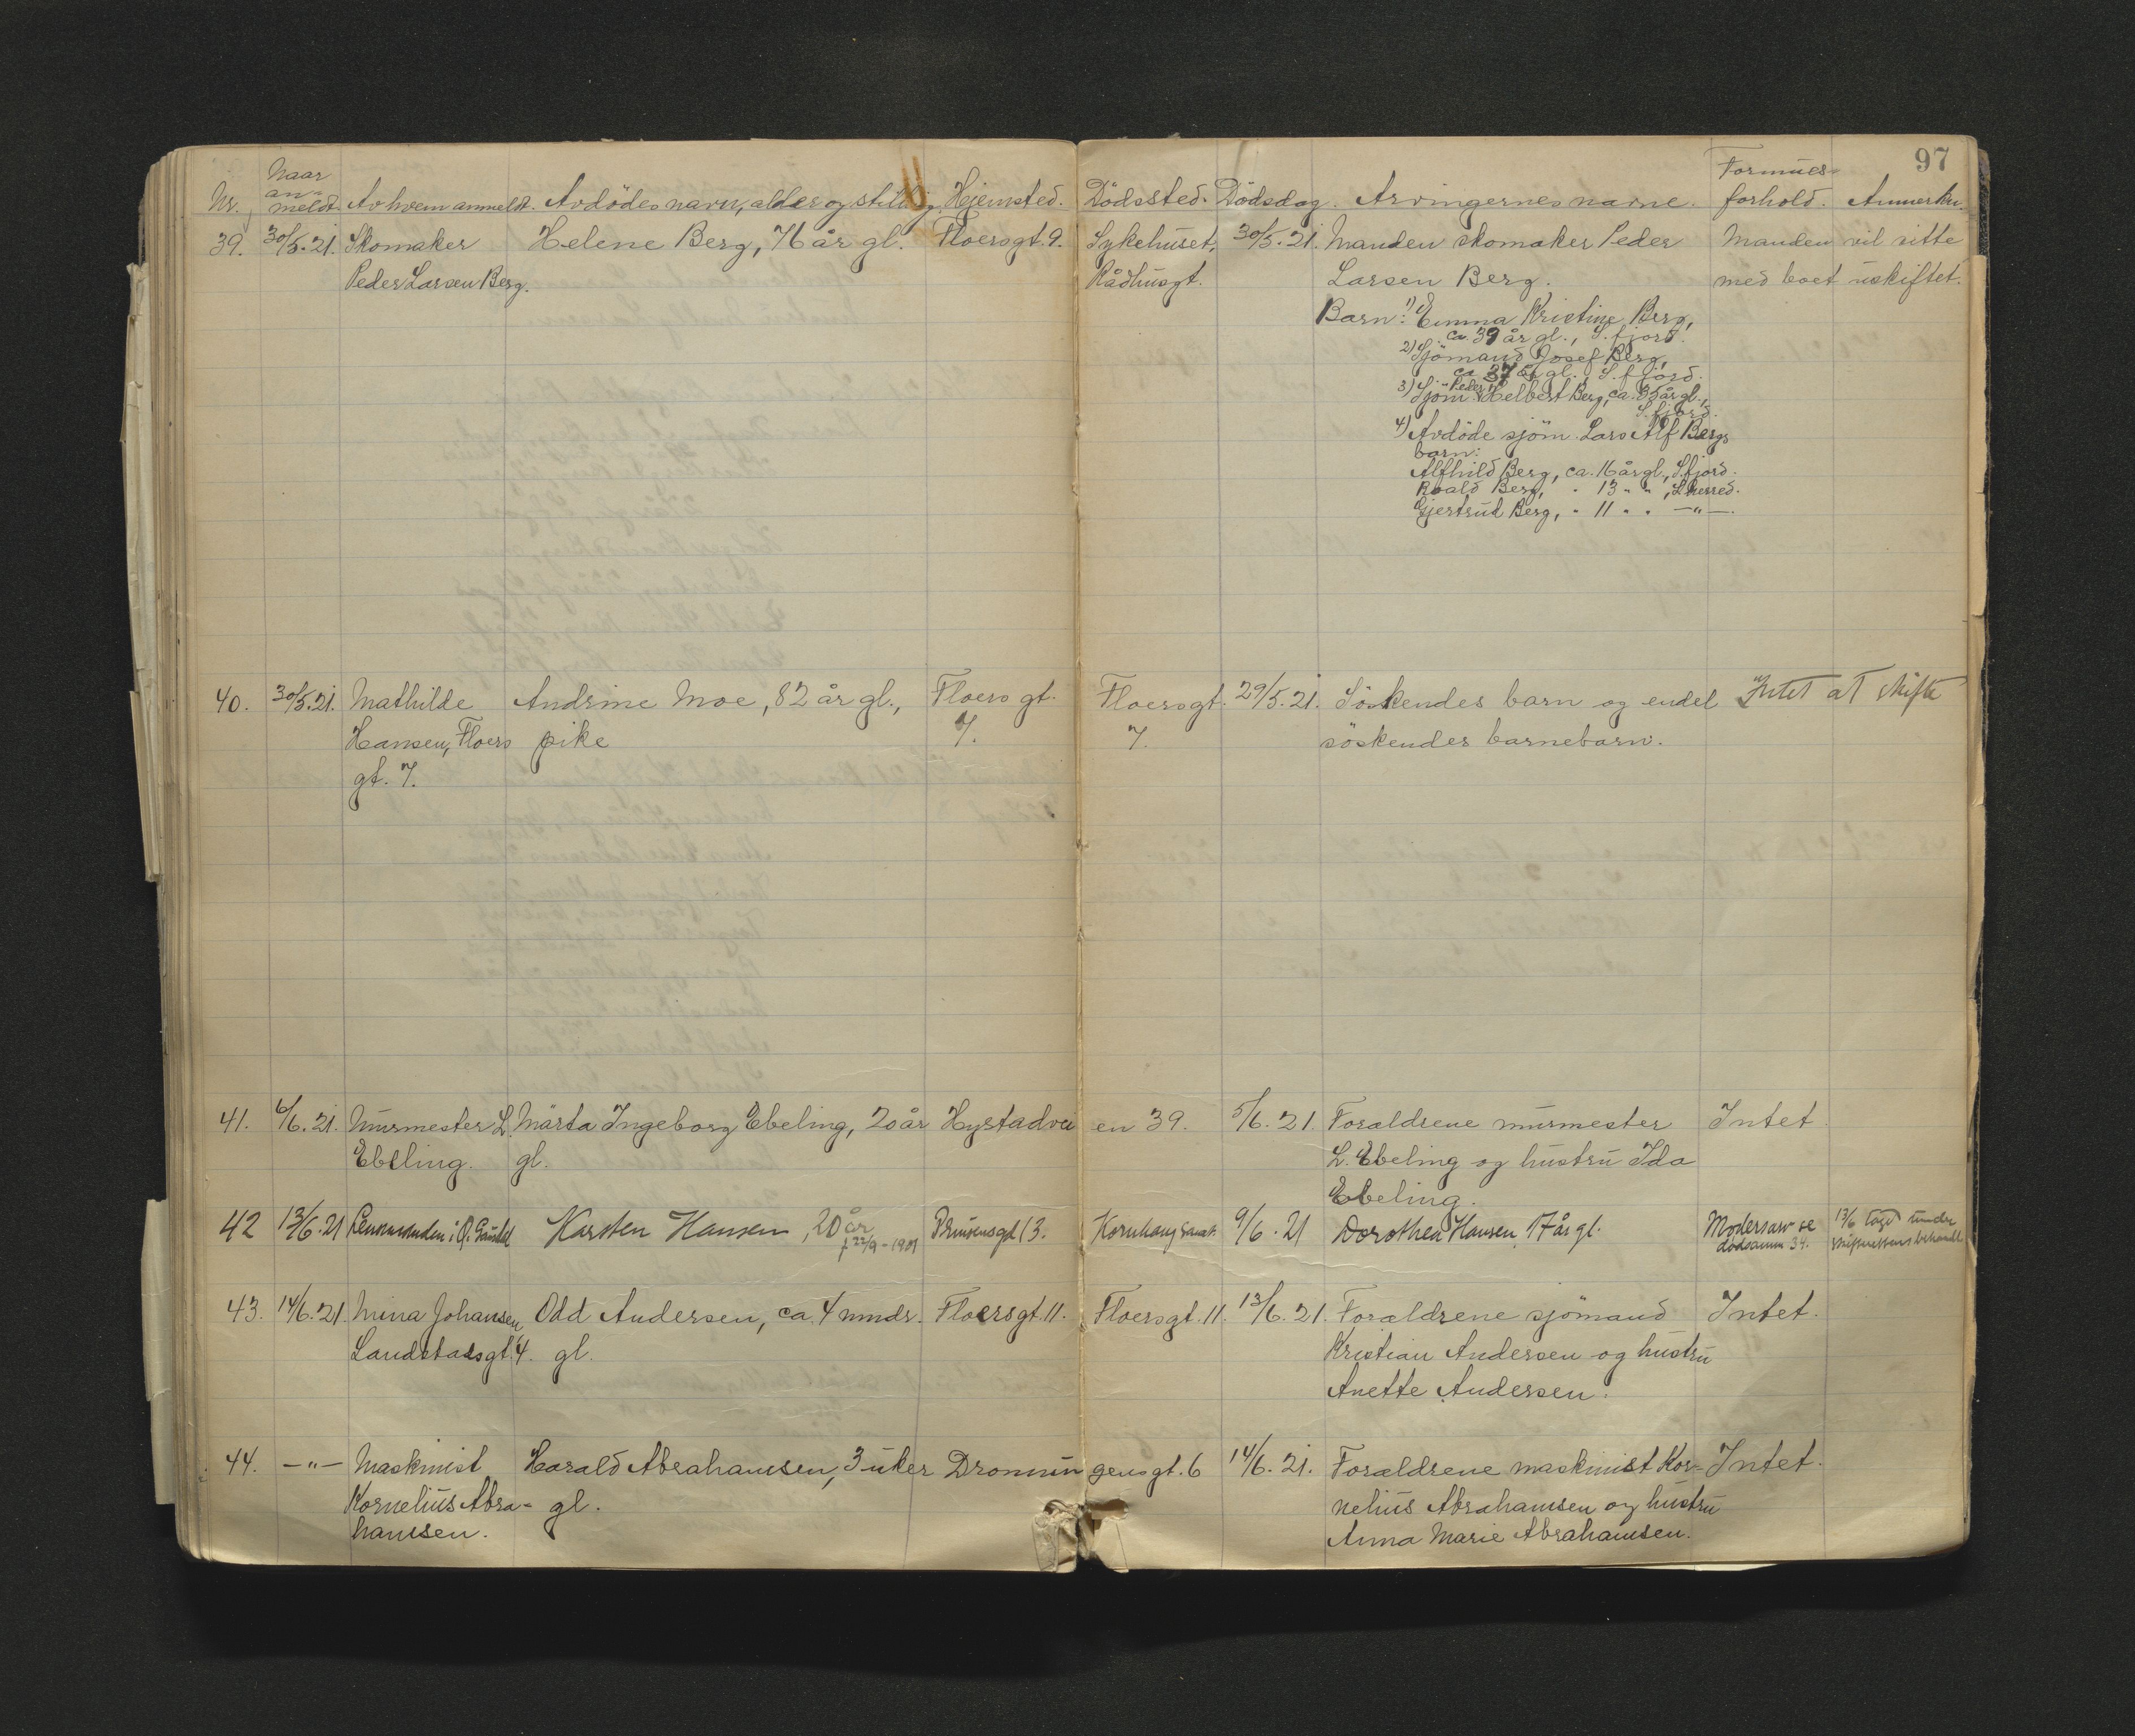 97
Nr. Naar an-meldt. Av hvem anmeldt. Avdödes navn, alder og stilling. Hjemsted. Dödssted. Dödsdag. Arvingernes navne. Formues-forhold. Anmerkn.
39. 30/5.21. Skomaker Helene Berg, 76 år gl. Floersgt. 9. Sykehuset, 30/5.21. Manden skomaker Peder Manden vil sitte
Peder Larsen Berg. Rådhusgt. Larsen Berg. med boet uskiftet.
Barn: 1) Emma Kristine Berg,
ca. 39 år gl., S.fjord.
2) Sjömand Josef Berg,
ca 37 år gl., S.fjord.
3) Sjöm. Peder Helbert Berg, ca. 35 år gl.,
S.fjord.
4) Avdöde sjöm. Lars Alf Bergs
barn:
Alfhild Berg, ca. 16 år gl., S.fjord.
Roald Berg, " 13 " " , S.herred.
Gjertrud Berg, " 11 " " —"—.
40. 30/5.21. Mathilde Andrine Moe, 82 år gl., Floersgt. Floersgt. 29/5.21. Söskendes barn og endel Intet at skifte
Hansen, Floers pike 7. 7. söskendes barnebarn.
gt. 7.
41. 6/6.21. Murmester L. Märta Ingeborg Ebeling, 20 år Hystadveien 39. 5/6.21. Foraldrene murmester Intet.
Ebeling. gl. L. Ebeling og hustru Ida
Ebeling.
42 13/6.21 Karsten Hansen, 20 år Prinsensgt 13. 9/6.21 Dorothea Hansen 17 år gl. Modersarv se 13/6 tagd under
f 22/9-1901 dödsanm 34. skifterettens behandl
43. 14/6.21. Mina Johansen, Odd Andersen, ca. 4 mndr. Floersgt. 11. Floersgt. 11. 13/6.21. Foraldrene sjömand Intet.
Landstadsgt. 4. gl. Kristian Andersen og hustru
Anette Andersen.
44. —"— Maskinist Harald Abrahamsen, 3 uker Dronningensgt. 6 14/6.21. Foraldrene maskinist Kor- Intet.
Kornelius Abra- gl. nelius Abrahamsen og hustru
hamsen. Anna Marie Abrahamsen.